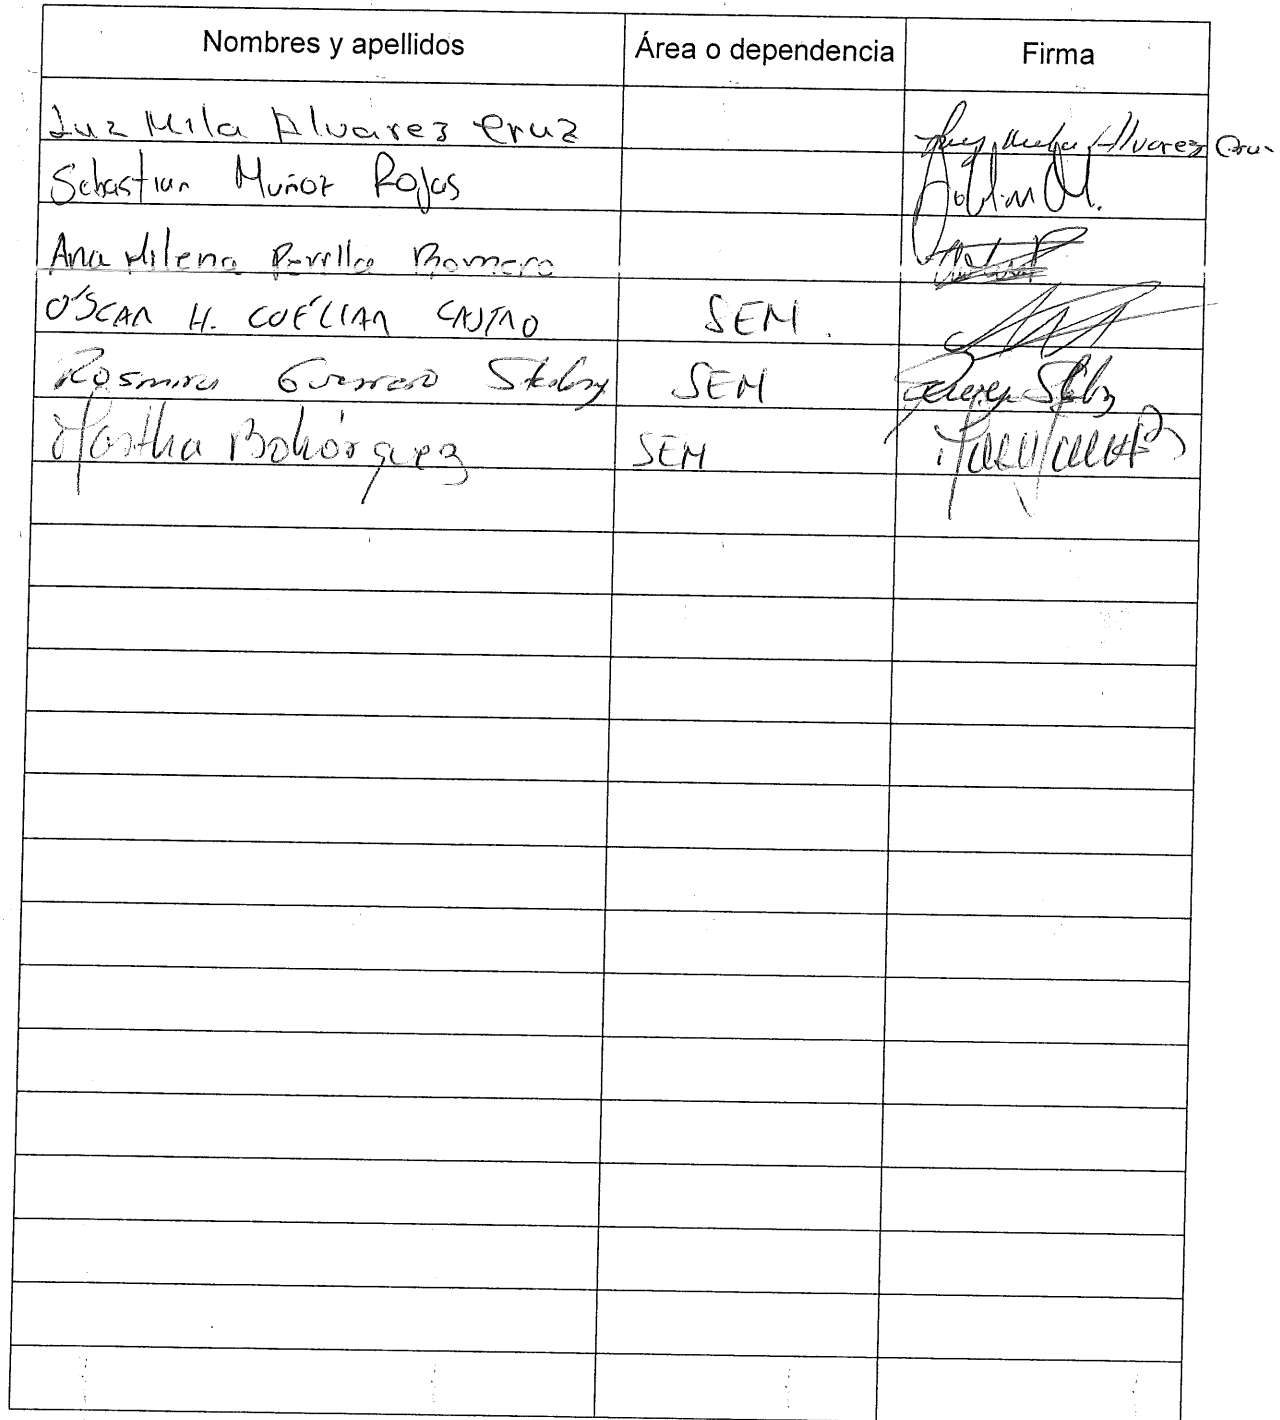 Nombres y apellidos Área o dependencia Firma
Luz Mila Alvarez Cruz Alvarez Cruz
Sebastian Muñoz Rojas
Ana Milena Romero
ÓSCAR H. CUÉLLAR CASTRO SEM.
Rosmira Guerrero SEM
Martha Bohórquez SEM